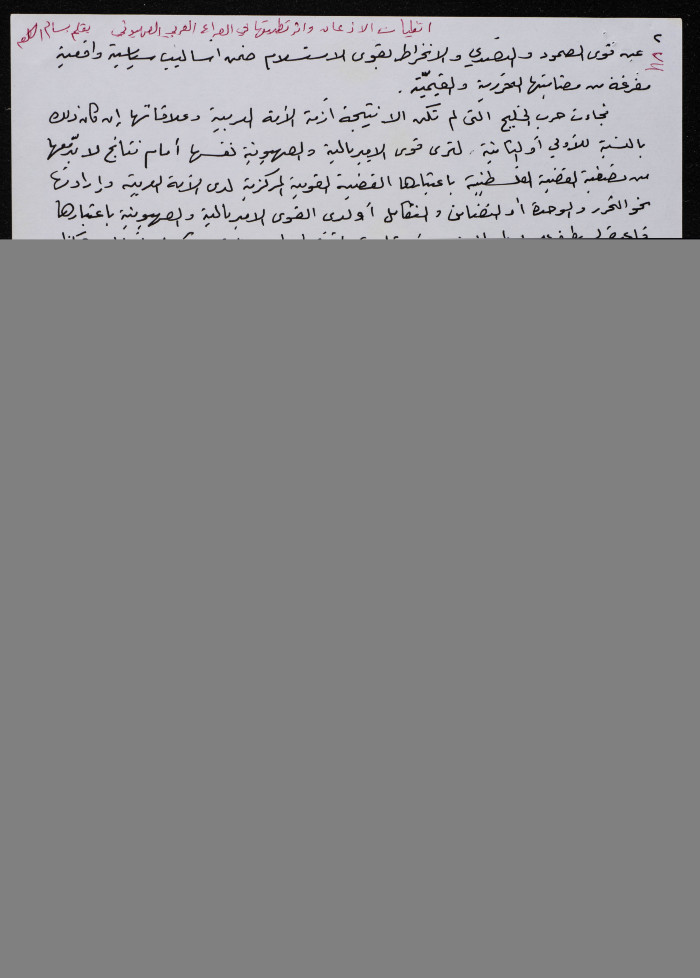 اتفاقيات الاذعان واثر تطبيقها في الصراع العربي الصهيوني بقلم
٢
عبر قوى الصمود والتصدي والانخراط بقوى الاستسلام ضمن اساليب سياسية واقعية
مفرغة من مضامينها التحررية والقيميّة .
فجاءت حرب الخليج التي لم تكن الا نتيجة أزمة الأمة العربية وعلاقاتها إن كان ذلك
بالنسبة للأولى أو الثانية ، لترى قوى الامبريالية والصهيونية نفسها أمام نتائج لا بدّ معها
من تصفية القضية الفلسطينية باعتبارها القضية القومية المركزية لدى الأمة العربية وإرادتها
نحو التحرر والوحدة أو التضامن والتكامل أو لدى القوى الامبريالية والصهيونية باعتبارها